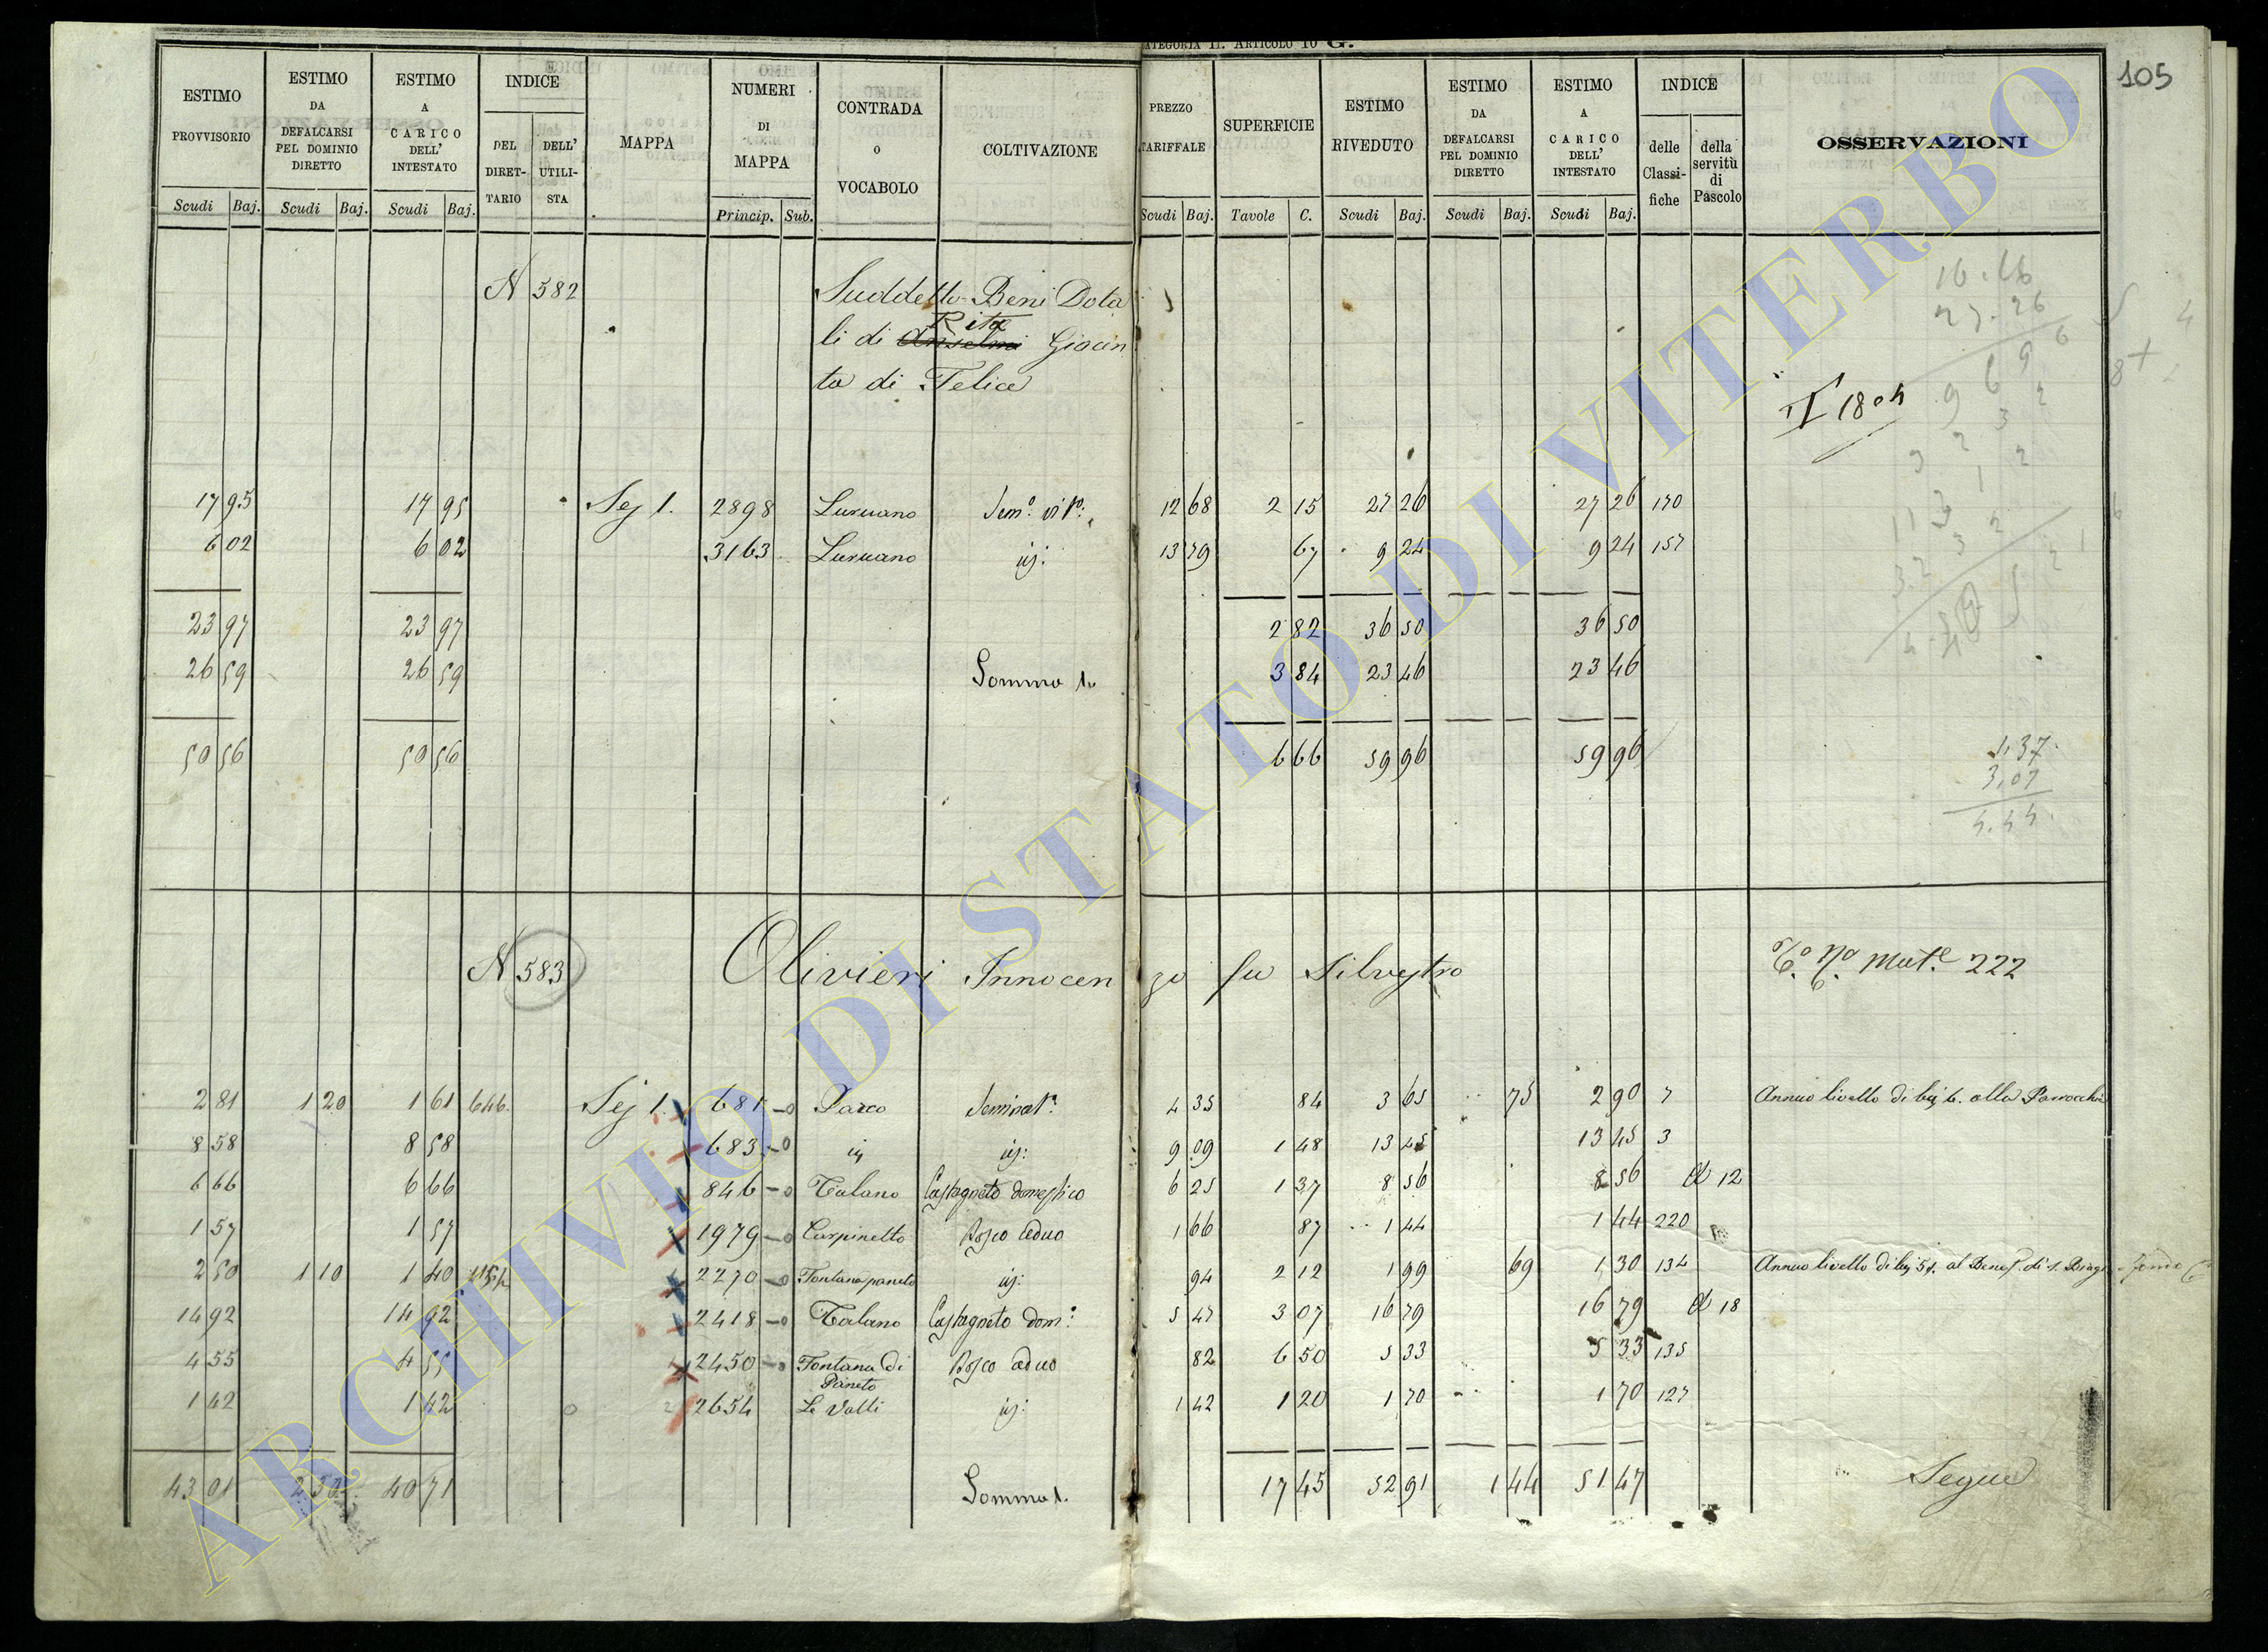 CATEGORIA II. ARTICOLO 10 G.
105
ESTIMO PROVVISORIO | ESTIMO DA DEFALCARSI PEL DOMINIO DIRETTO | ESTIMO A CARICO DELL' INTESTATO | INDICE | MAPPA | NUMERI DI MAPPA | CONTRADA O VOCABOLO | COLTIVAZIONE | PREZZO TARIFFALE | SUPERFICIE | ESTIMO RIVEDUTO | ESTIMO DA DEFALCARSI PEL DOMINIO DIRETTO | ESTIMO A CARICO DELL' INTESTATO | INDICE | OSSERVAZIONI
DEL DIRETTARIO | DELL' UTILISTA | delle Classifiche | della servitù di Pascolo
Scudi Baj. | Scudi Baj. | Scudi Baj. | Princip. Sub. | Scudi Baj. | Tavole C. | Scudi Baj. | Scudi Baj. | Scudi Baj.
N 582 Suddetto Beni Dota
li di Anselmi Rita Giacin
to di Felice
17 95 | 17 95 | Sez 1. | 2898 | Luruano | Sem.o vit.o | 12 68 | 2 15 | 27 26 | 27 26 | 170
6 02 | 6 02 | 3163 | Luruano | id: | 13 79 | 67 | 9 24 | 9 24 | 157
23 97 | 23 97 | 2 82 | 36 50 | 36 50
26 59 | 26 59 | Somma 1. | 3 84 | 23 46 | 23 46
50 56 | 50 56 | 6 66 | 59 96 | 59 96
1,37
3,07
4.44
N 583 Olivieri Innocenzo fu Silvestro 222
2 81 | 1 20 | 1 61 | 646 | Sez 1. | 681 | Parco | Seminat.o | 4 35 | 84 | 3 65 | 75 | 2 90 | 7 | Annuo livello di baj 6. alla Parrocchia
8 58 | 8 58 | 683 | id | id: | 9 09 | 1 48 | 13 45 | 13 45 | 3
6 66 | 6 66 | 846 | Talano | Castagneto domestico | 6 25 | 1 37 | 8 56 | 8 56 | 12
1 57 | 1 57 | 1979 | Carpinetto | Bosco ceduo | 1 66 | 87 | 1 44 | 1 44 | 220
2 50 | 1 10 | 1 40 | 2270 | Fontana paneto | id: | 94 | 2 12 | 1 99 | 69 | 1 30 | 134 | Annuo livello di baj 51. al Benef. di S. Biagio
14 92 | 14 92 | 2418 | Talano | Castagneto dom.o | 5 47 | 3 07 | 16 79 | 16 79 | 18
4 55 | 4 55 | 2450 | Fontana di Paneto | Bosco ceduo | 82 | 6 50 | 5 33 | 5 33 | 135
1 42 | 1 42 | 2654 | Le Valli | id: | 1 42 | 1 20 | 1 70 | 1 70 | 127
43 01 | 2 30 | 40 71 | Somma 1. | 17 45 | 52 91 | 1 44 | 51 47 | Segue
ARCHIVIO DI STATO DI VITERBO